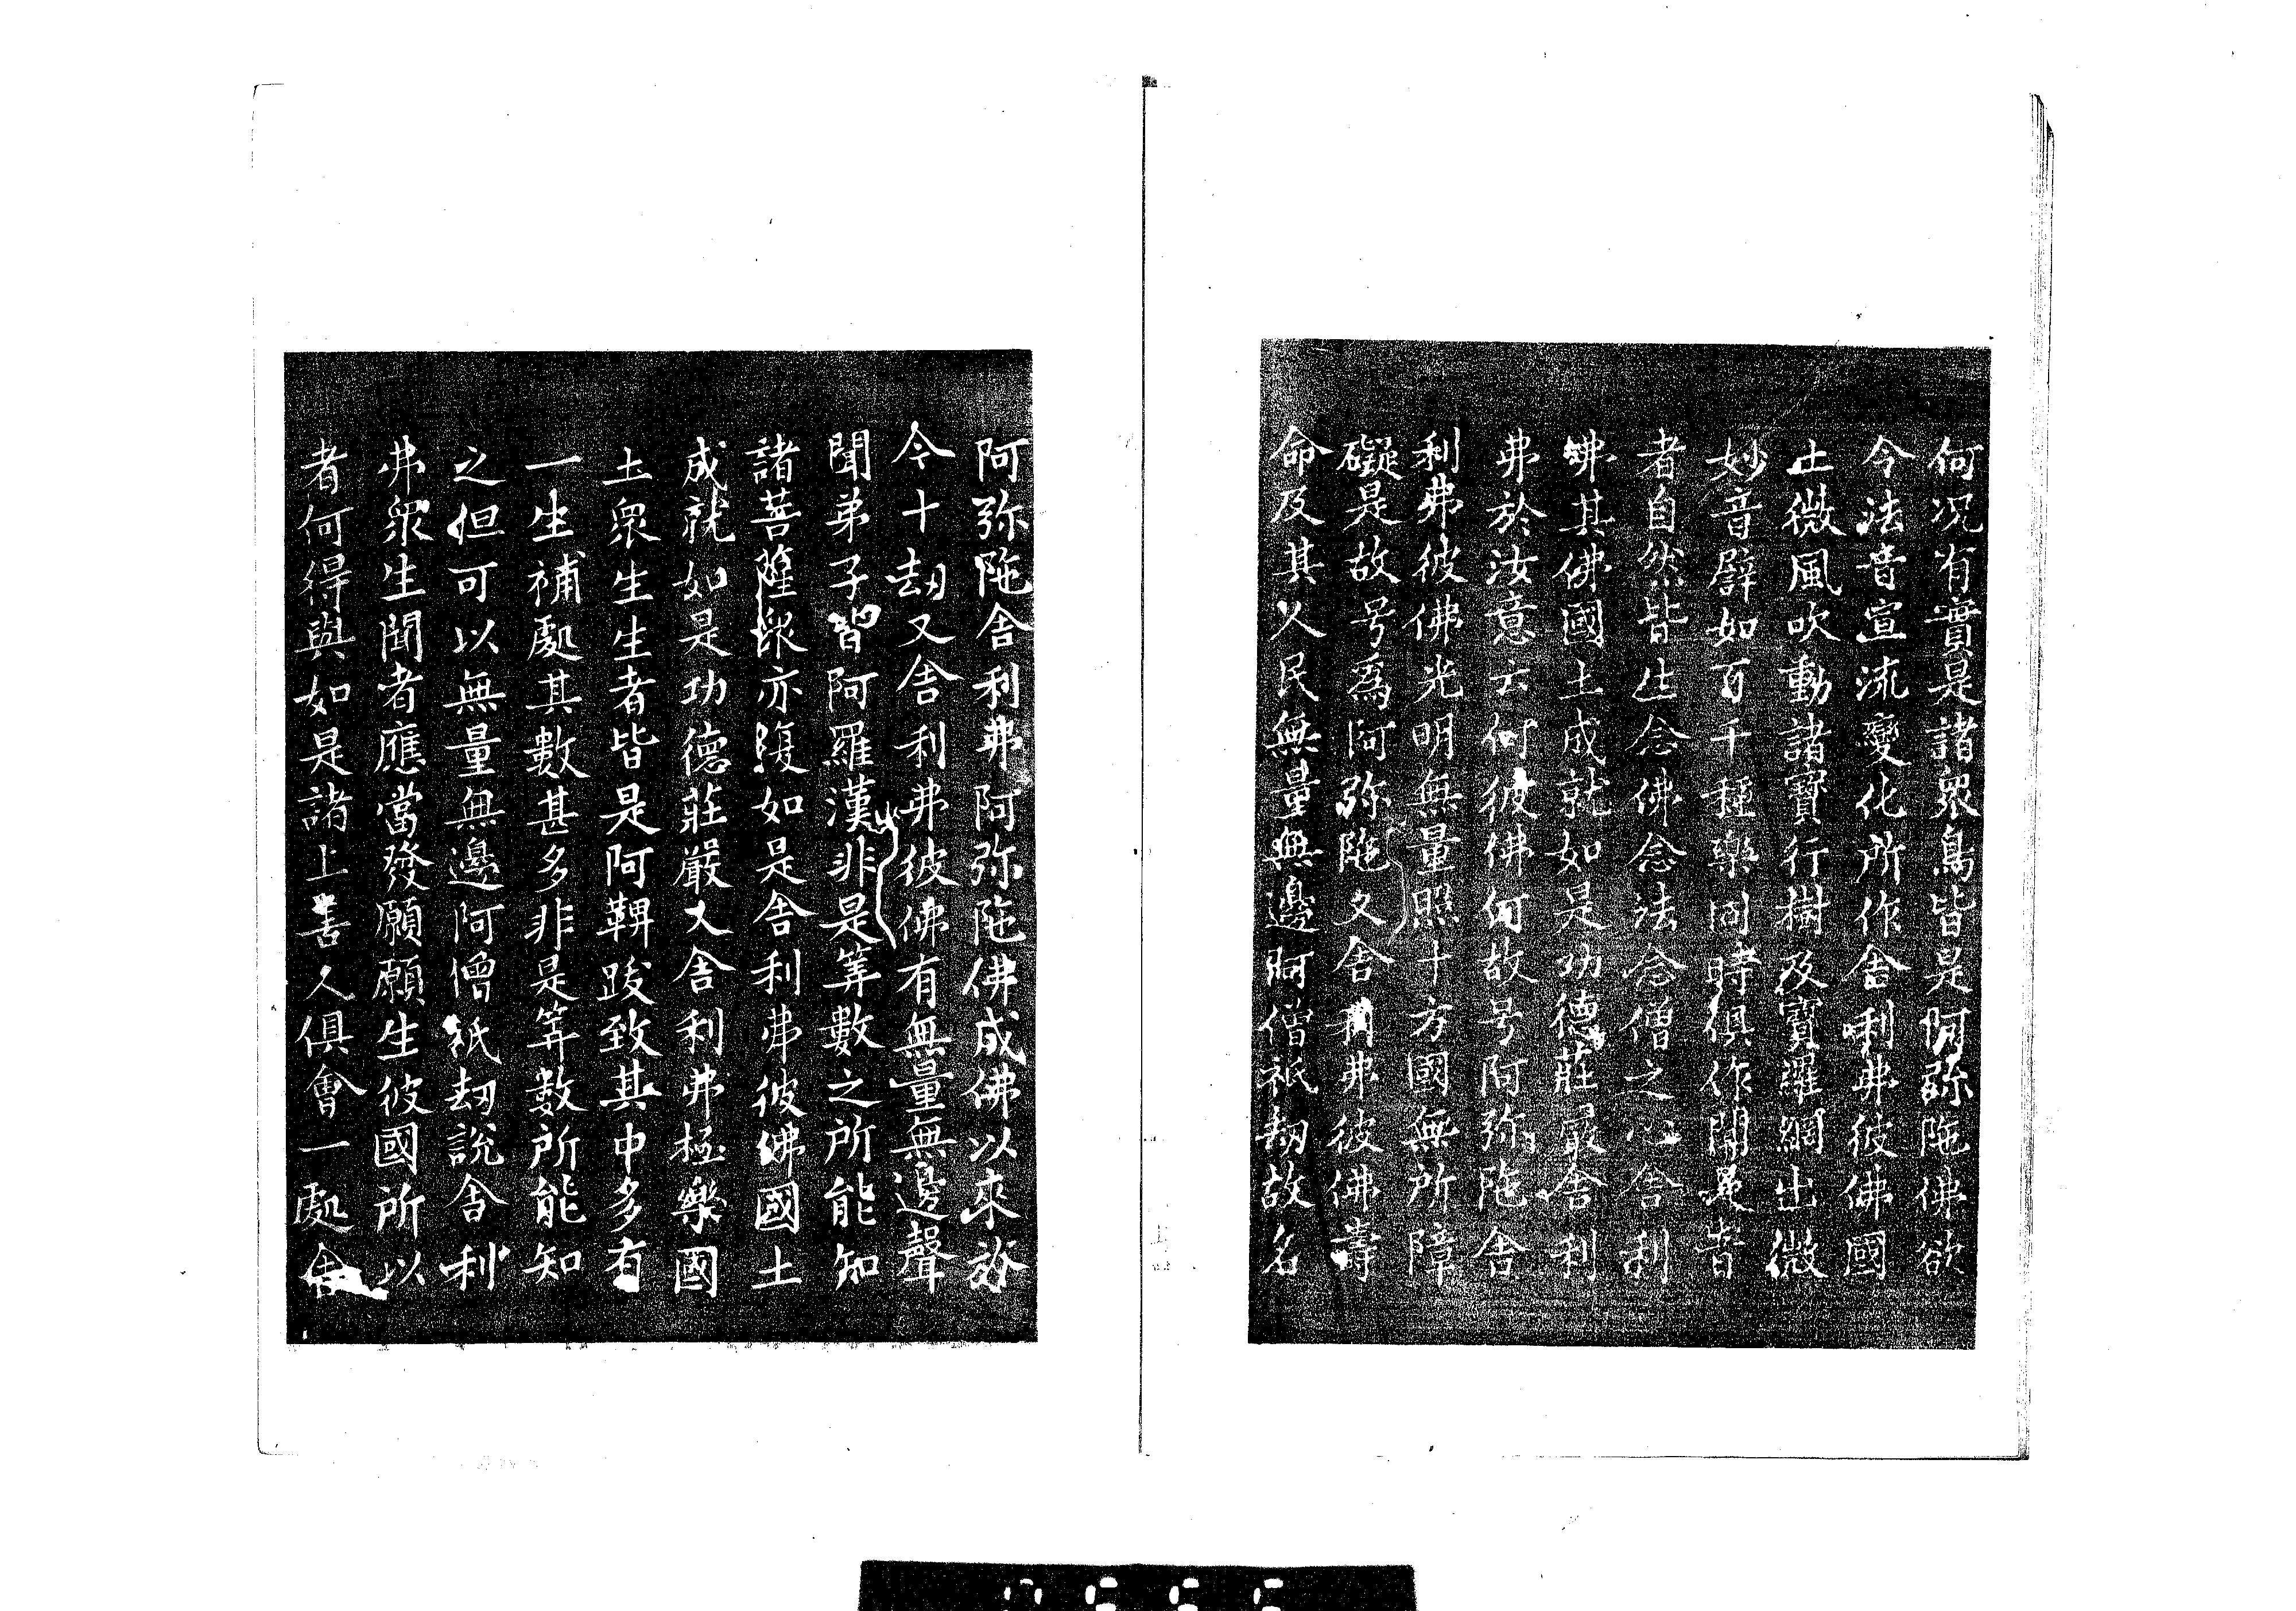 何况有實是諸衆鳥皆是阿弥陁佛欲
令法音宣流變化所作舍利弗彼佛國
土微風吹動諸寶行樹及寶羅網出微
妙音譬如百千種樂同時俱作聞是音
者自然皆生念佛念法念僧之心舍利
弗其佛國土成就如是功德莊嚴舍利
弗於汝意云何彼佛何故号阿弥陁舍
利弗彼佛光明無量照十方國無所障
礙是故号爲阿弥陁又舍利弗彼佛壽
命及其人民無量無邊阿僧祇劫故名
阿弥陁舍利弗阿弥陁佛成佛以來於
今十劫又舍利弗彼佛有無量無邊聲
聞弟子皆阿羅漢非是筭數之所能知
諸菩薩衆亦復如是舍利弗彼佛國土
成就如是功德莊嚴又舍利弗極樂國
土衆生生者皆是阿鞞跋致其中多有
一生補處其數甚多非是筭數所能知
之但可以無量無邊阿僧祇劫說舍利
弗衆生聞者應當發願願生彼國所以
者何得與如是諸上善人俱會一處舍